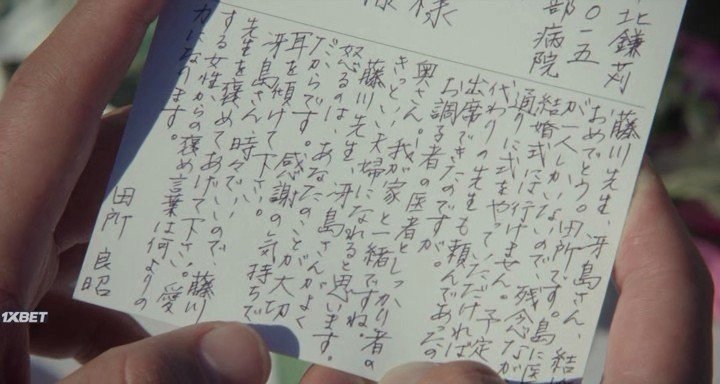 北鎌苅
〇一五
部病院
様
藤川先生、冴島さん、結
おめでとう。田所です。島に医
が一人しかいないので、残念なが
結婚式には行けません。予定
通りに式をやっていただければ
代わりの先生も頼んであったの
出席できたのですが。
お調子者の医者としっかり者の
奥さん。我が家と一緒ですね。
きっといい夫婦になれると思います。
藤川先生、冴島さんがよく
怒るのは、あなたのことが大切
だからです。感謝の気持ちで
耳を傾けて下さい。
冴島さん、時々でいいので、藤川
先生を褒めてあげて下さい。愛
する女性からの褒め言葉は何よりの
力になります。
田所 良昭
1XBET